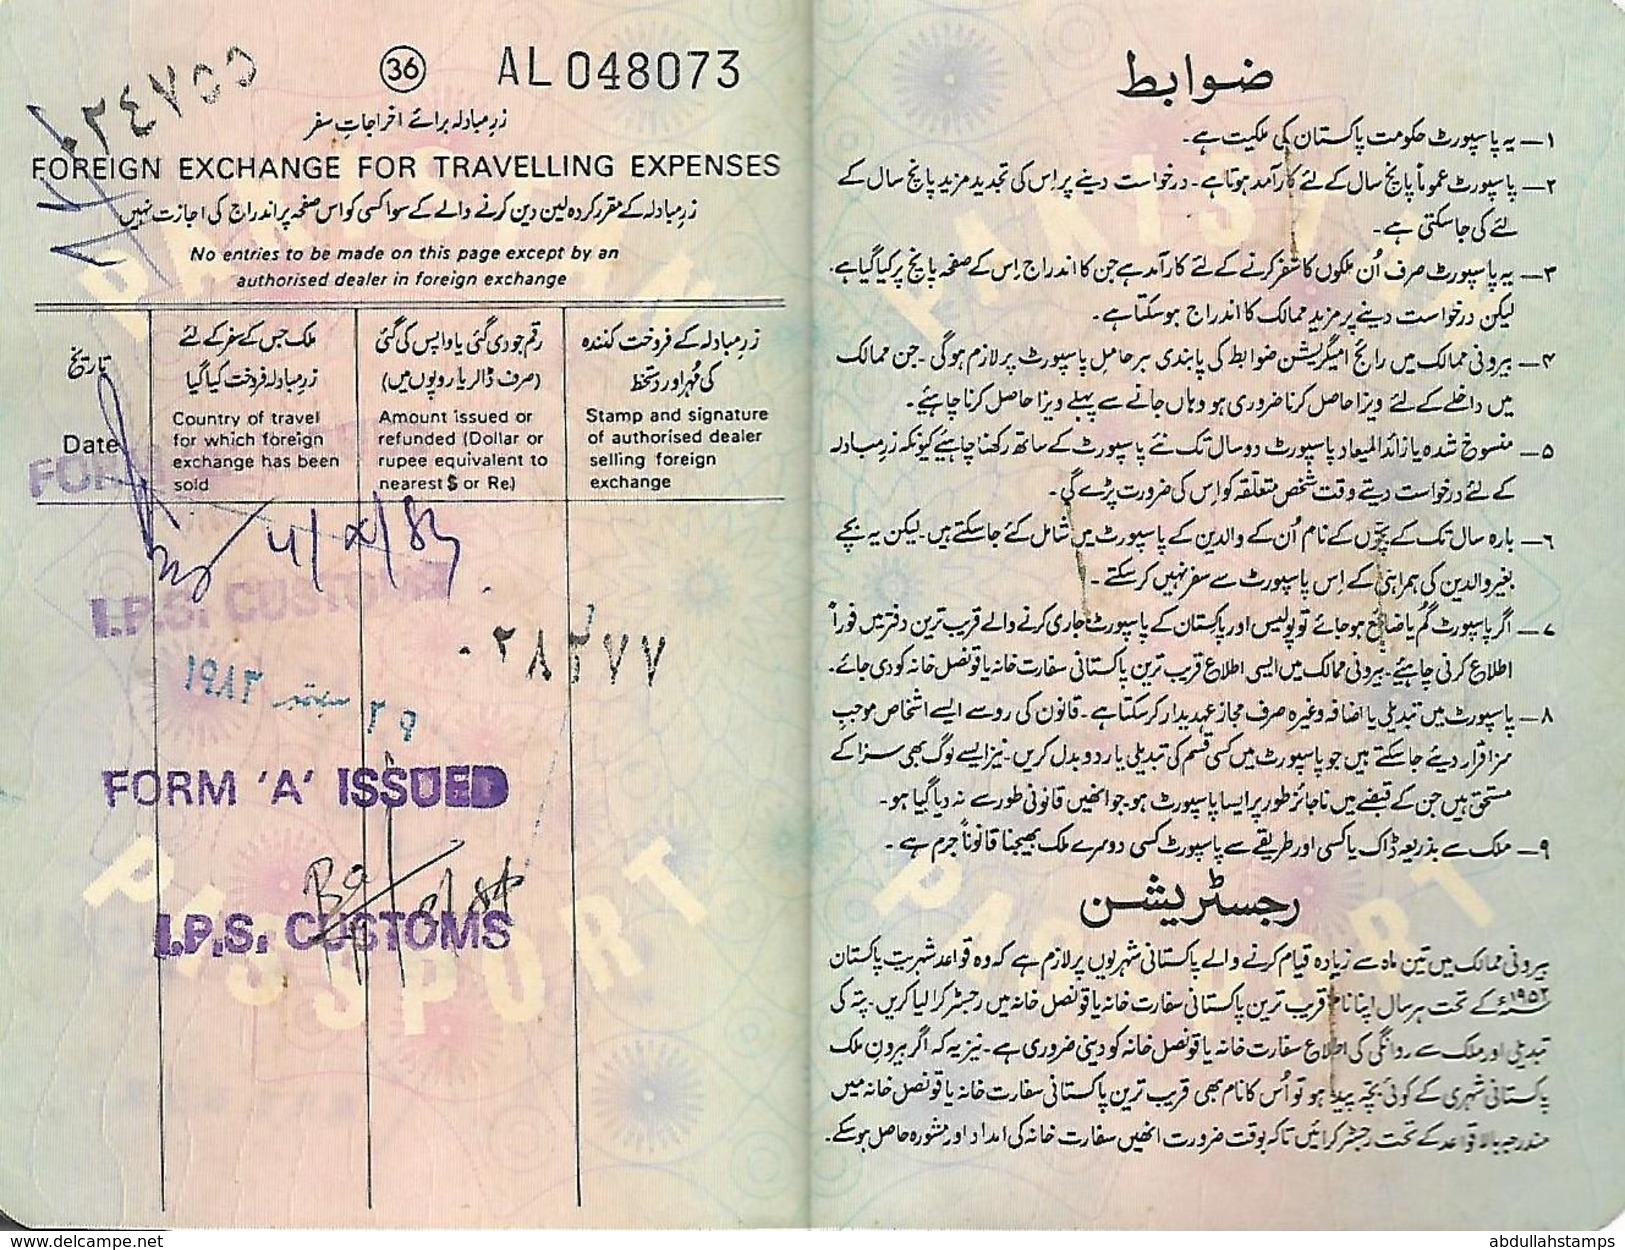 36 AL 048073
۰۲۴۷۵۵
زرِمبادلہ برائے اخراجاتِ سفر
FOREIGN EXCHANGE FOR TRAVELLING EXPENSES
زرِمبادلہ کے مقرر کردہ لین دین کرنے والے کے سوا کسی کو اس صفحہ پر اندراج کی اجازت نہیں
No entries to be made on this page except by an
authorised dealer in foreign exchange
تاریخ
Date
ملک جس کے سفر کے لئے
زرِمبادلہ فروخت کیا گیا
Country of travel
for which foreign
exchange has been
sold
رقم جو دی گئی یا واپس کی گئی
(صرف ڈالر یا روپوں میں)
Amount issued or
refunded (Dollar or
rupee equivalent to
nearest $ or Re.)
زرِمبادلہ کے فروخت کنندہ
کی مُہر اور دستخط
Stamp and signature
of authorised dealer
selling foreign
exchange
FORM
I.P.S. CUSTOMS
٢٩ سبتمبر ١٩٨٣
FORM 'A' ISSUED
I.P.S. CUSTOMS
PAKISTAN
PASSPORT
ضوابط
۱ــ یہ پاسپورٹ حکومت پاکستان کی ملکیت ہے۔
۲ــ پاسپورٹ عموماً پانچ سال کے لئے کارآمد ہوتا ہے۔ درخواست دینے پر اِس کی تجدید مزید پانچ سال کے
لئے کی جاسکتی ہے۔
۳ــ یہ پاسپورٹ صرف اُن ملکوں کا سفر کرنے کے لئے کارآمد ہے جن کا اندراج اِس کے صفحہ پانچ پر کیا گیا ہے۔
لیکن درخواست دینے پر مزید ممالک کا اندراج ہوسکتا ہے۔
۴ــ بیرونی ممالک میں رائج امیگریشن ضوابط کی پابندی ہر حاملِ پاسپورٹ پر لازم ہوگی۔ جن ممالک
میں داخلے کے لئے ویزا حاصل کرنا ضروری ہو وہاں جانے سے پہلے ویزا حاصل کرنا چاہیئے۔
۵ــ منسوخ شدہ یا زائد المیعاد پاسپورٹ دو سال تک نئے پاسپورٹ کے ساتھ رکھنا چاہیئے کیونکہ زرِمبادلہ
کے لئے درخواست دیتے وقت شخصِ متعلّقہ کو اِس کی ضرورت پڑے گی۔
۶ــ بارہ سال تک کے بچّوں کے نام اُن کے والدین کے پاسپورٹ میں شامل کئے جاسکتے ہیں۔ لیکن یہ بچے
بغیر والدین کی ہمراہی کے اِس پاسپورٹ سے سفر نہیں کرسکتے۔
۷ــ اگر پاسپورٹ گم یا ضائع ہوجائے تو پولیس اور پاکستان کے پاسپورٹ جاری کرنے والے قریب ترین دفتر میں فوراً
اطلاع کرنی چاہیئے۔ بیرونی ممالک میں ایسی اطلاع قریب ترین پاکستانی سفارت خانہ یا قونصل خانہ کو دی جائے۔
۸ــ پاسپورٹ میں تبدیلی یا اضافہ وغیرہ صرف مجاز عہدیدار کرسکتا ہے۔ قانون کی رو سے ایسے اشخاص موجبِ
سزا قرار دیئے جاسکتے ہیں جو پاسپورٹ میں کسی قسم کی تبدیلی یا ردوبدل کریں۔ نیز ایسے لوگ بھی سزا کے
مستحق ہیں جن کے قبضے میں ناجائز طور پر ایسا پاسپورٹ ہو۔ جو انھیں قانونی طور سے نہ دیا گیا ہو۔
۹ــ ملک سے بذریعہ ڈاک یا کسی اور طریقے سے پاسپورٹ کسی دوسرے ملک بھیجنا قانوناً جرم ہے۔
رجسٹریشن
بیرونی ممالک میں تین ماہ سے زیادہ قیام کرنے والے پاکستانی شہریوں پر لازم ہے کہ وہ قواعد شہریت پاکستان
۱۹۵۲ء کے تحت ہر سال اپنا نام قریب ترین پاکستانی سفارت خانہ یا قونصل خانہ میں رجسٹر کرالیا کریں۔ پتہ کی
تبدیلی اور ملک سے روانگی کی اطلاع سفارت خانہ یا قونصل خانہ کو دینی ضروری ہے۔ نیز یہ کہ اگر بیرون ملک
پاکستانی شہری کے کوئی بچّہ پیدا ہو تو اُس کا نام بھی قریب ترین پاکستانی سفارت خانہ یا قونصل خانہ میں
مندرجہ بالا قواعد کے تحت رجسٹر کرائیں تاکہ بوقت ضرورت انھیں سفارت خانہ کی امداد اور مشورہ حاصل ہوسکے۔
www.delcampe.net
abdullahstamps